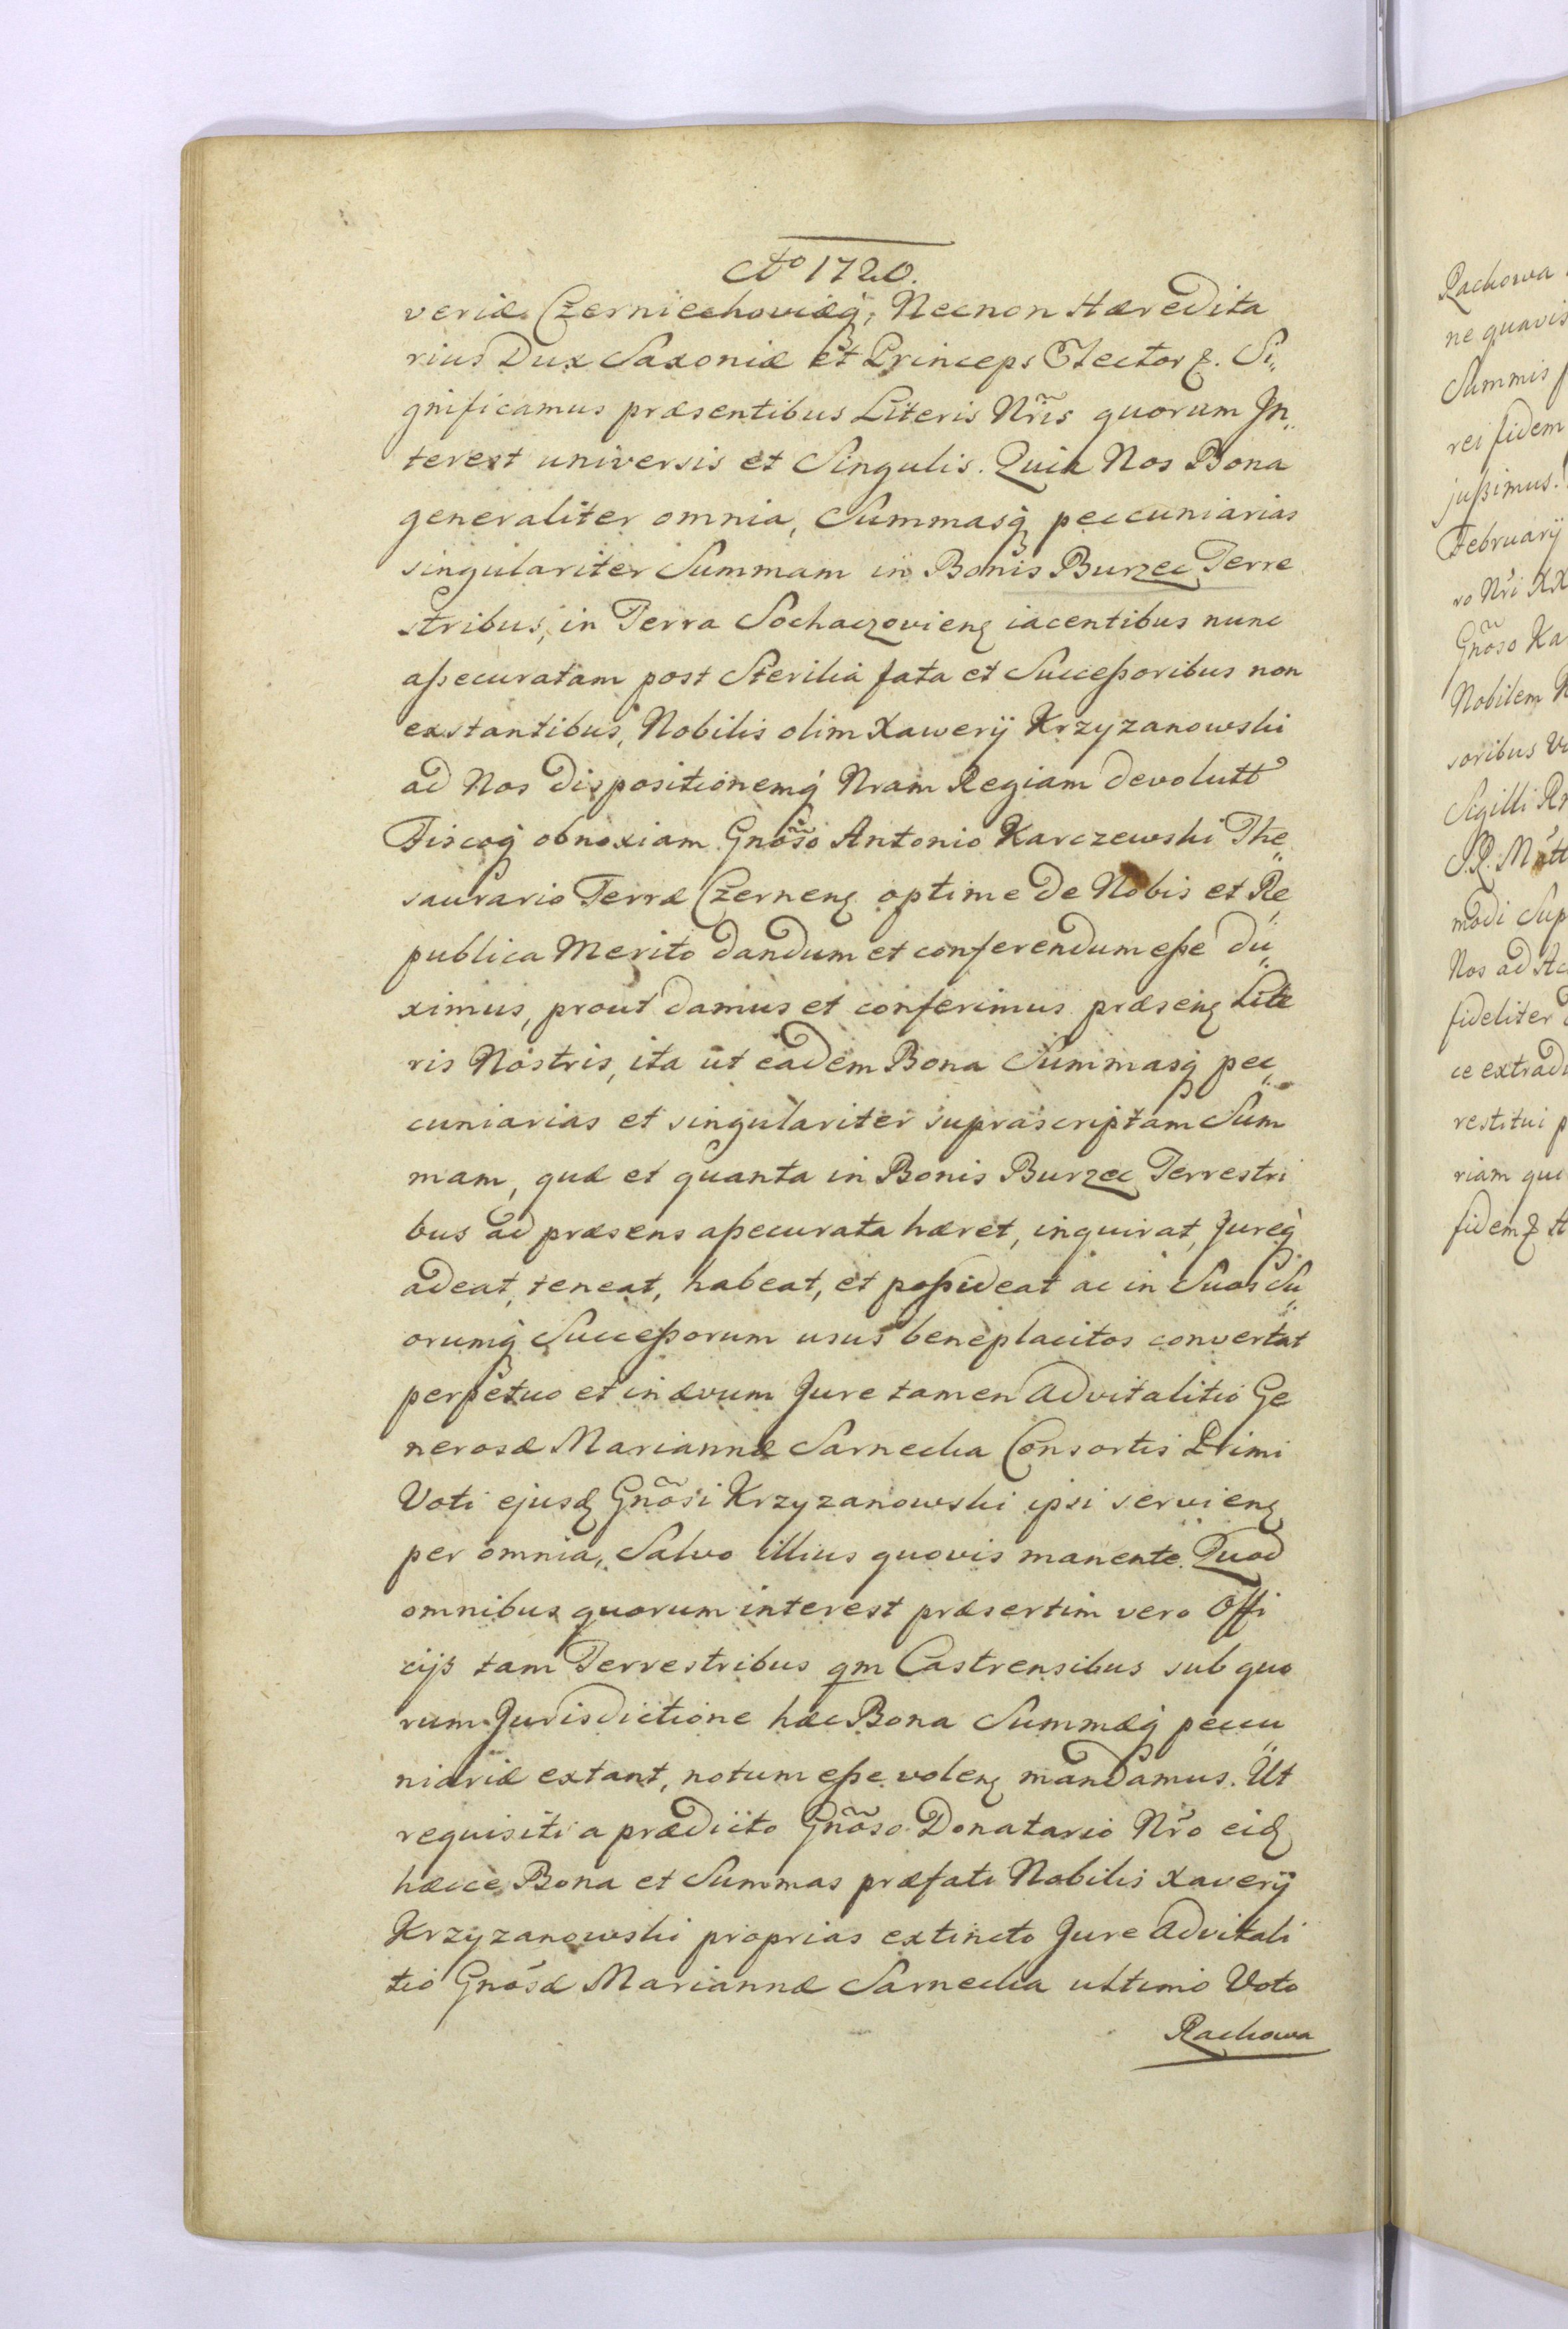 Ao 1720.
veriæ Czerniechoviæq; Necnon Hæredita
rius Dux Saxoniæ et Princeps Elector &. Si„
gnificamus præsentibus Literis Nr̃is quorum In„
terest universis et Singulis. Quia Nos Bona
generaliter omnia, Summasq; peccuniarias
singulariter Summam in Bonis Burzec Terre
stribus, in Terra Sochaczovien̄ iacentibus nunc
aßecuratam post Sterilia fata et Succeßoribus non
exstantibus, Nobilis olim Xawerÿ Krzyzanowski
ad Nos dispositionemq; Nram Regiam devolutt
Fiscoq; obnoxiam Gnõso Antonio Karczewski The„
saurario Terræ Czernen̄ optime de Nobis et Re„
publica Merito dandum et conferendum eße du„
ximus, prout damus et conferimus præsen̄ Lite
ris Nostris, ita ut eadem Bona Summasq; pec„
cuniarias et singulariter suprascriptam Sum
mam, quæ et quanta in Bonis Burzec Terrestri
bus ad præsens aßecurata hæret, inquirat, Jureq;
adeat, teneat, habeat, et poßideat ac in Suos Su„
orumq; Succeßorum usus beneplacitos convertat
perpetuo et in ævum Jure tamen Advitalitio Ge
nerosæ Mariannæ Sarnecka Consortis Primi
Voti ejusd̄ Gnõsi Krzyzanowski ipsi servien̄
per omnia, Salvo illius quovis manente. Quod
omnibus quorum interest præsertim vero Offi
cijs tam Terrestribus qm Castrensibus sub quo
rum Jurisdictione hæc Bona Summæq; peccu
niariæ extant, notum eße volen̄ mandamus. Ut
requisiti a prædicto Gnõso Donatario Nr̃o eid̄
hæcce Bona et Summas præfati Nobilis Xaverÿ
Krzyzanowski proprias extincto Jure Advitali
tio Gnõsæ Mariannæ Sarnecka ultimo Voto
Rachowa
Rachowa
ne quavis
Summis
rei fidem
jußimus.
Februarÿ
ro Nr̃i XX
Gnõso Ka
Nobilem
soribus
Sigilli
modi Sup
Nos ad Ac
fideliter
ce extradi
restitui p
riam qui
fidem & H